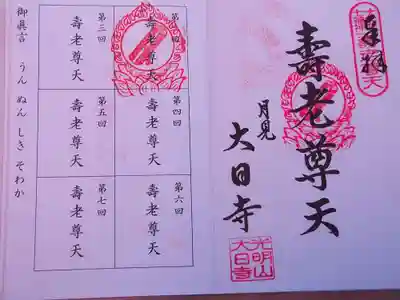 奉拝
壽老尊天
月見
大日寺
光明山
大日寺
壽老尊天
第三回
壽老尊天
第四回
壽老尊天
第五回
壽老尊天
第六回
壽老尊天
第七回
壽老尊天
御眞言 うん ぬん しき そわか